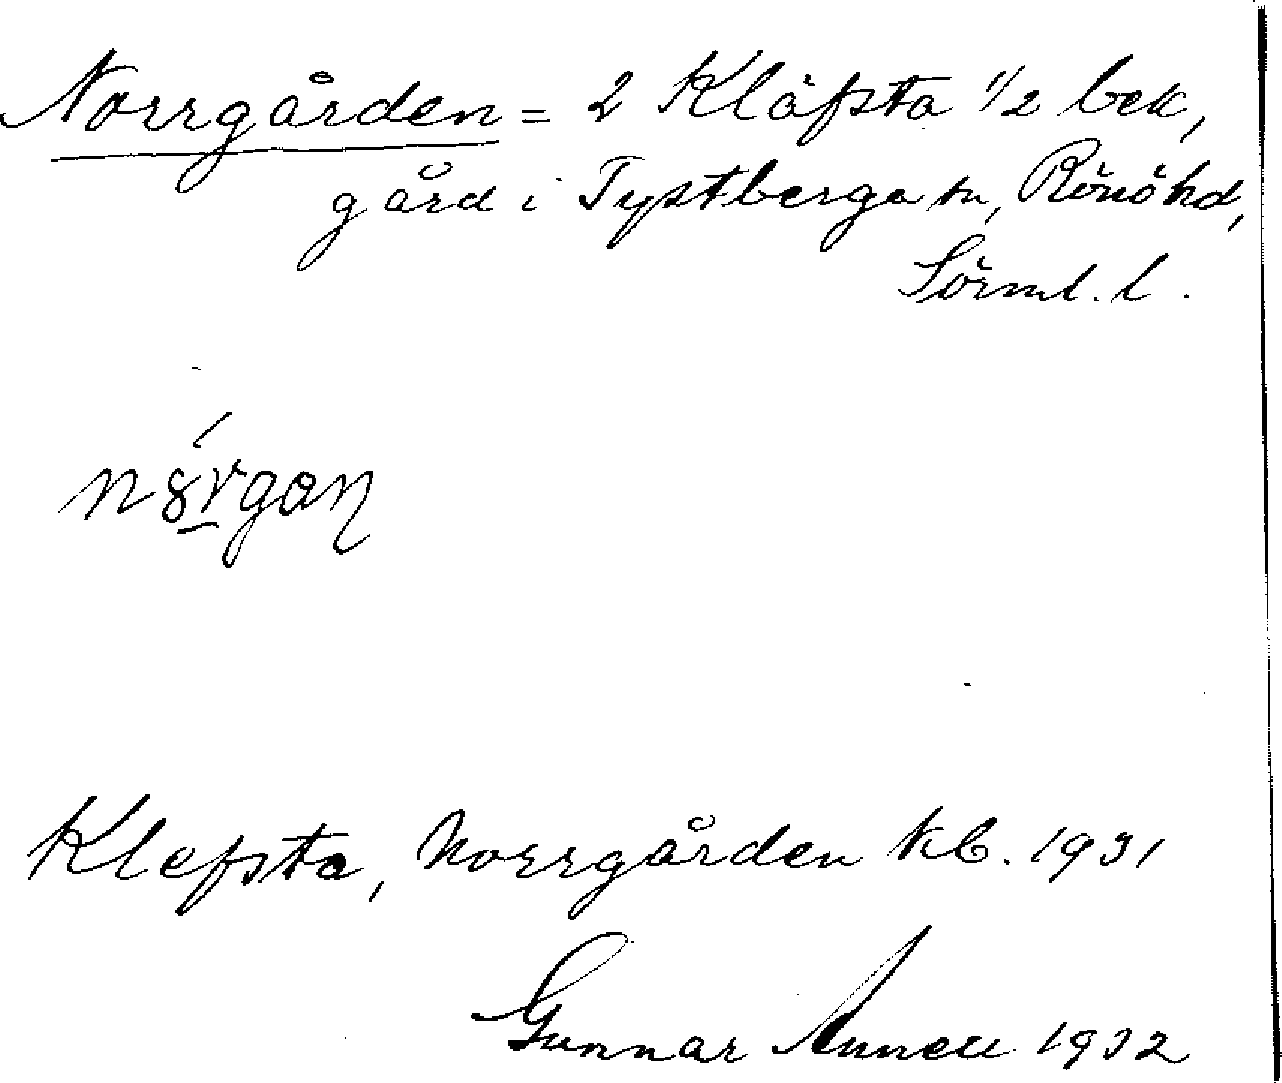 Norrgården = 2 Kläfsta 1/2 bek,
gård i Tystberga sn, Rönö hd,
Sörml. l.
Klefsta, Norrgården kb. 1931
Gunnar 1932